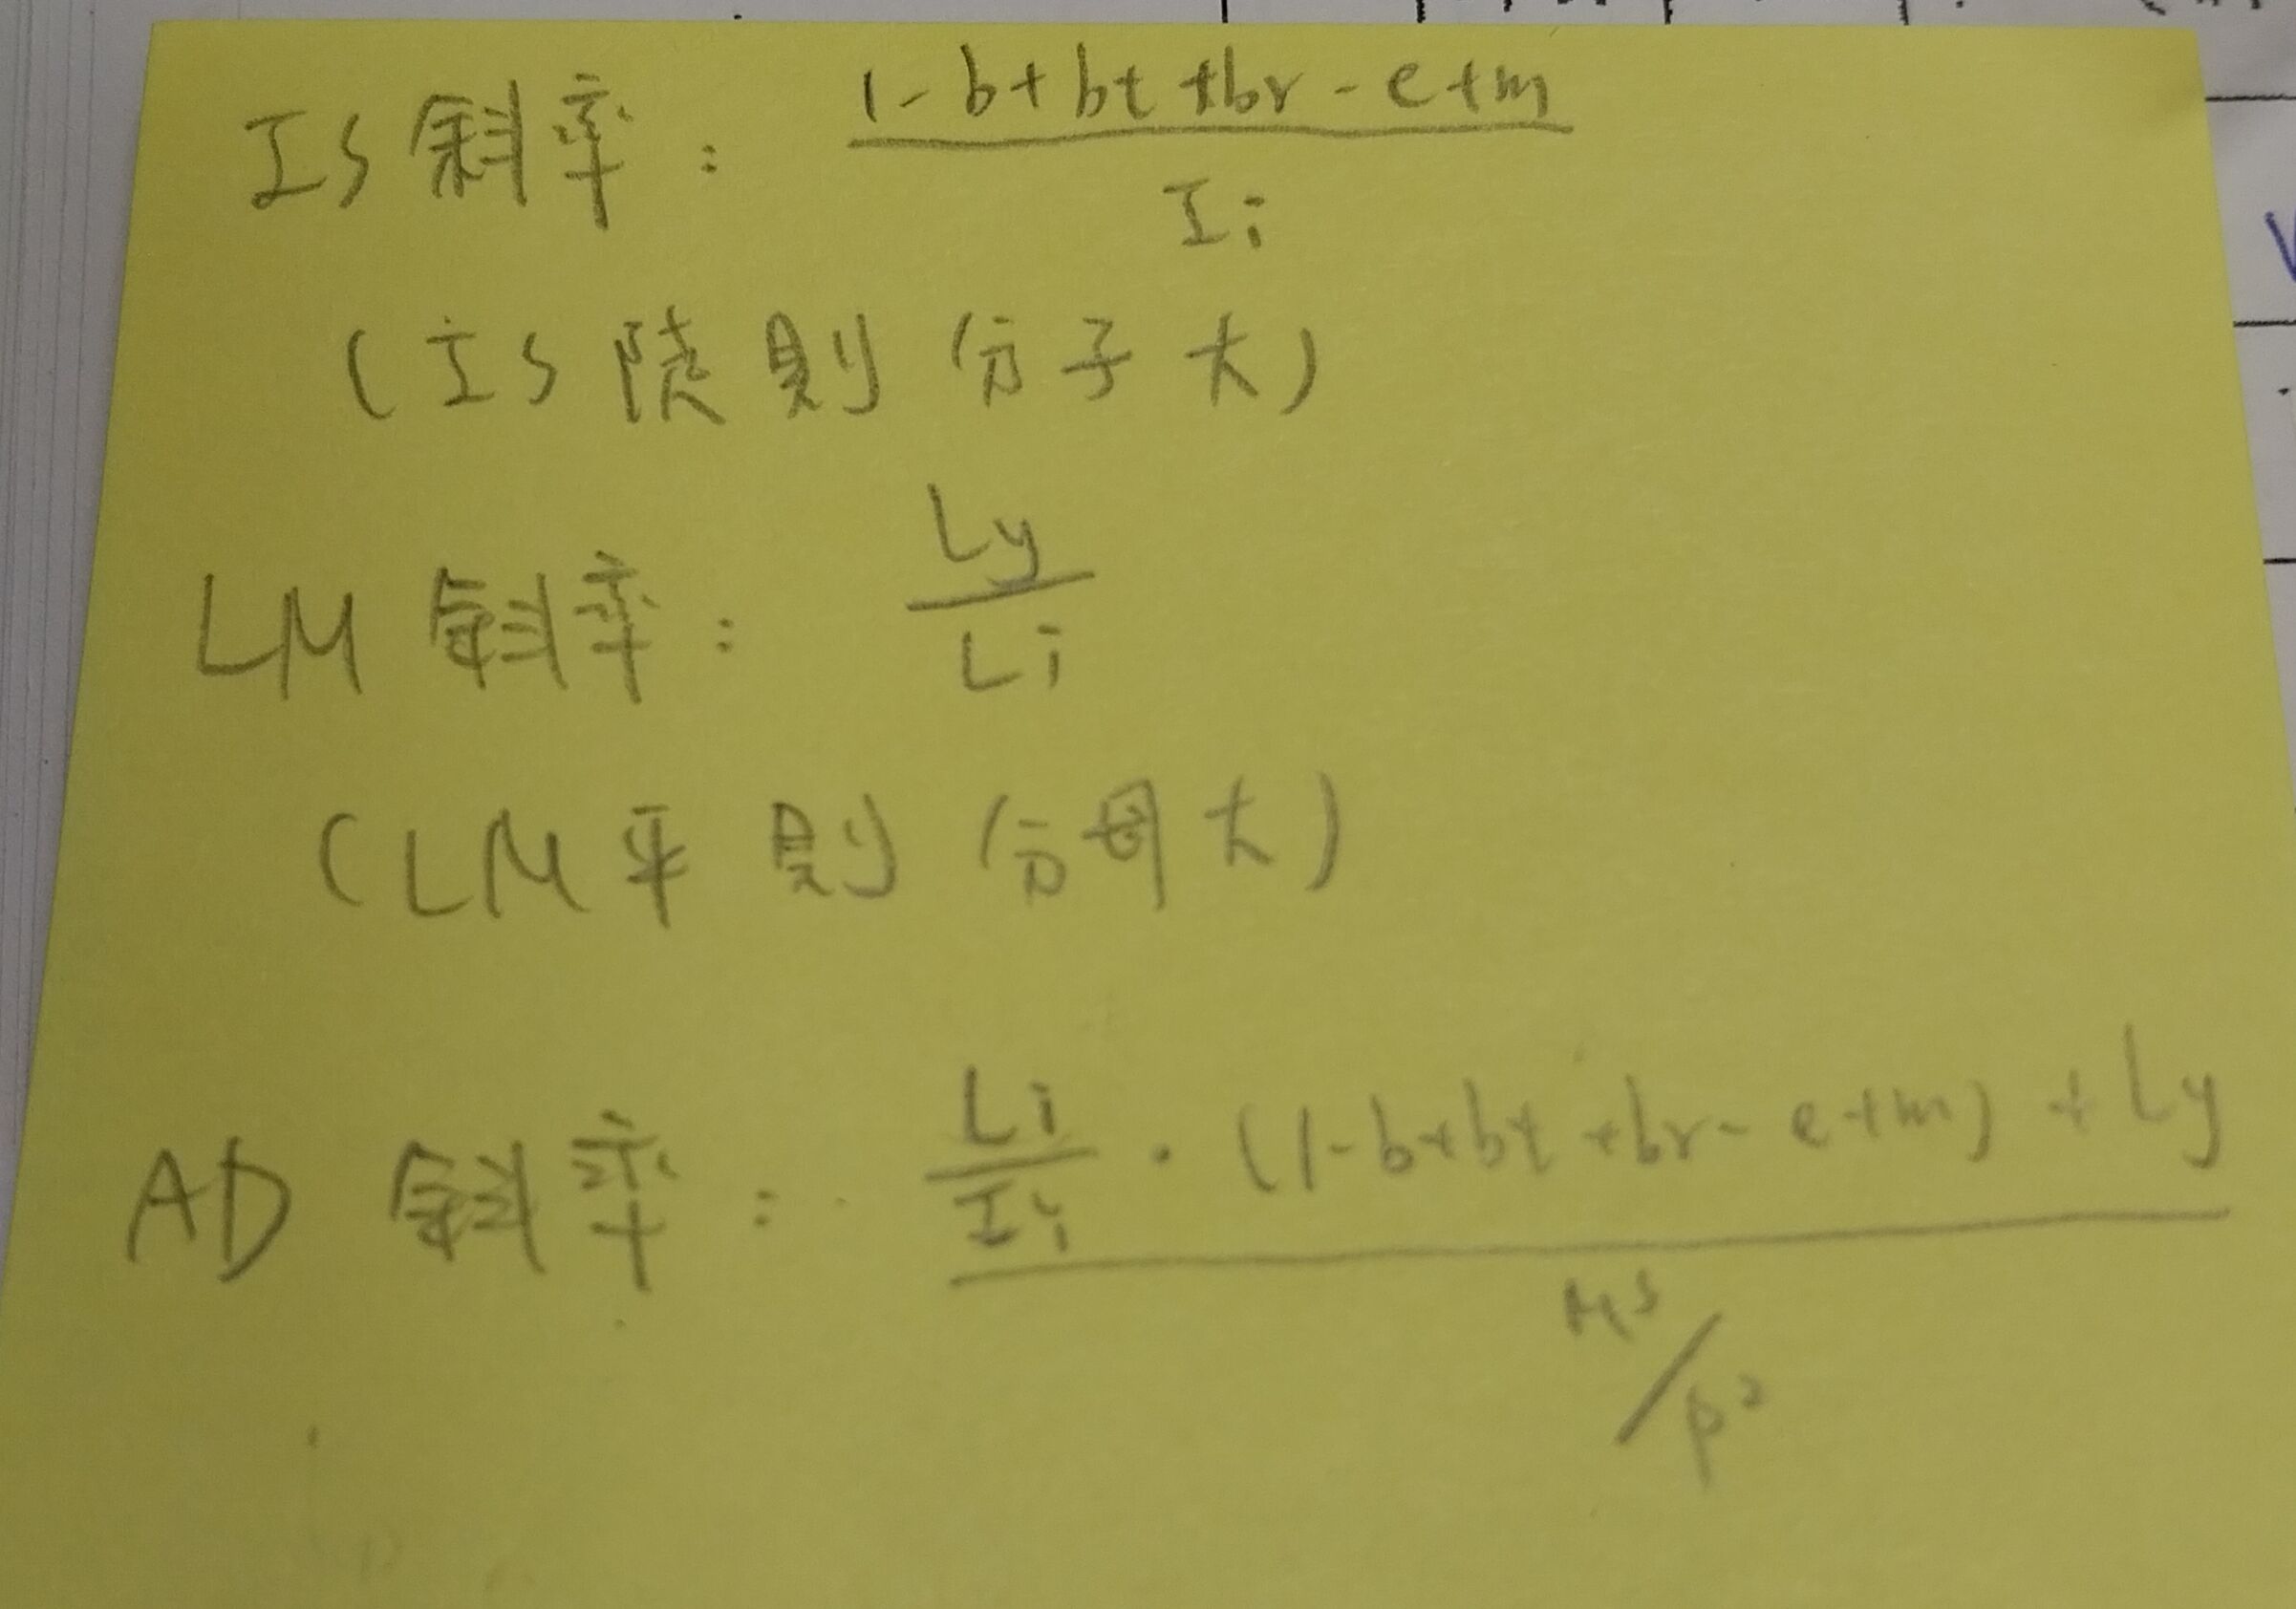 IS斜率： 1-b+bt+br-e+m / Ii
(IS陡則分子大)
LM斜率： Ly / Li
(LM平則分母大)
AD斜率： Li / Ii · (1-b+bt+br-e+m) + Ly
M^s / P^2